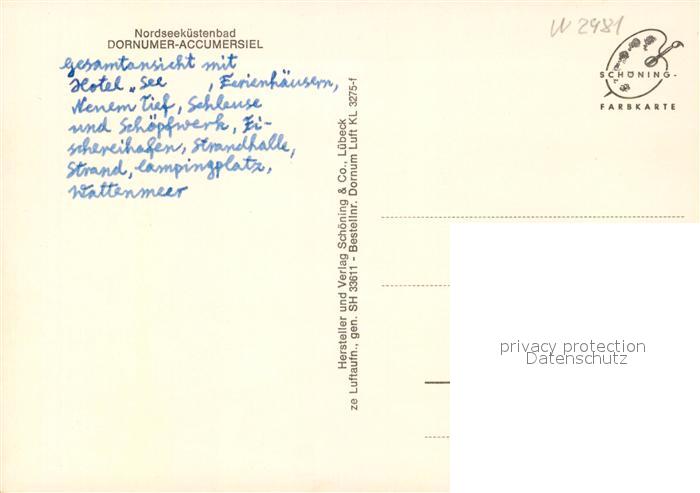 Nordseeküstenbad
DORNUMER-ACCUMERSIEL
Gesamtansicht mit
Hotel „See , Ferienhäusern,
Neuem Tief, Schleuse
und Schöpfwerk, Fi-
schereihafen, Strandhalle,
Strand, Campingplatz,
Wattenmeer
Hersteller und Verlag Schöning & Co., Lübeck
ze Luftaufn., gen. SH 33611 - Bestellnr. Dornum Luft KL 3275-f
W 2981
SCHÖNING-
FARBKARTE
privacy protection
Datenschutz